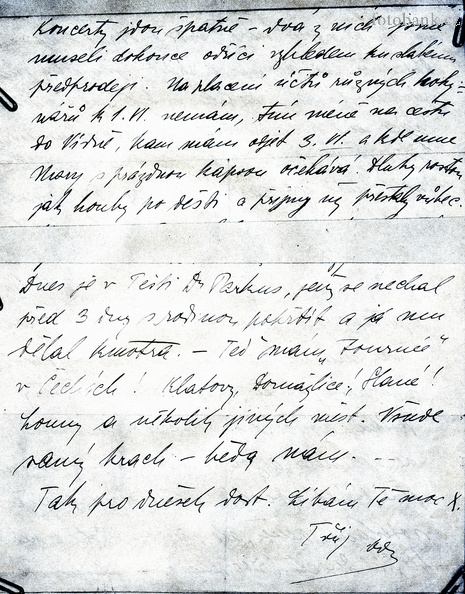 Koncerty jdou špatně – dva z nich jsme
museli dokonce odříci vzhledem ku slabému
předprodeji. Na placení účtů různých hoky-
nářů k 1.VI. nemám, tím méně na cestu
do Vídně, kam mám odjet 3.VI. a kde mne
s prázdnou kapsou očekává! Dluhy rostou
jak houby po dešti a příjmy mi přestaly vůbec.
Dnes je v Těšti Dr Parkus, jenž se nechal
před 3 dny s rodinou pokřtít a já mu
dělal kmotra. – Teď mám „Tournée“
v Čechách! Klatovy, Domažlice, Slané!
Louny a několik jiných měst. Všude
samý krach – běda nám. – –
Tak pro dnešek dost. Líbám Tě moc X.
Tvůj